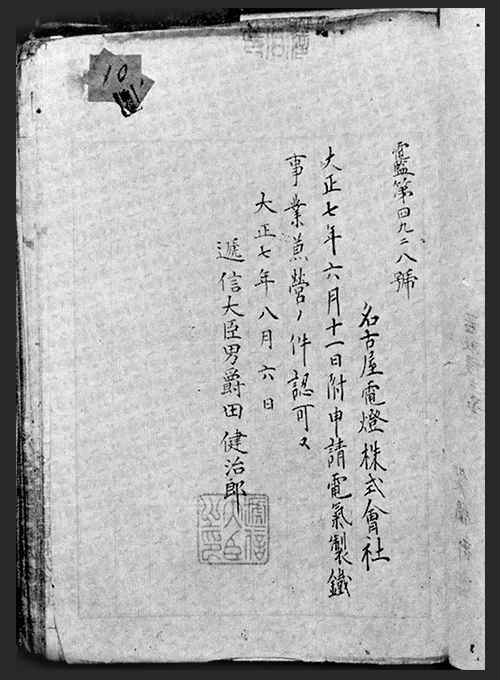 電監第四九二八號
名古屋電燈株式會社
大正七年六月十一日附申請電氣製鐵
事業兼營ノ件認可ス
大正七年八月六日
遞信大臣男爵田健治郎
遞信
大臣
之印
10